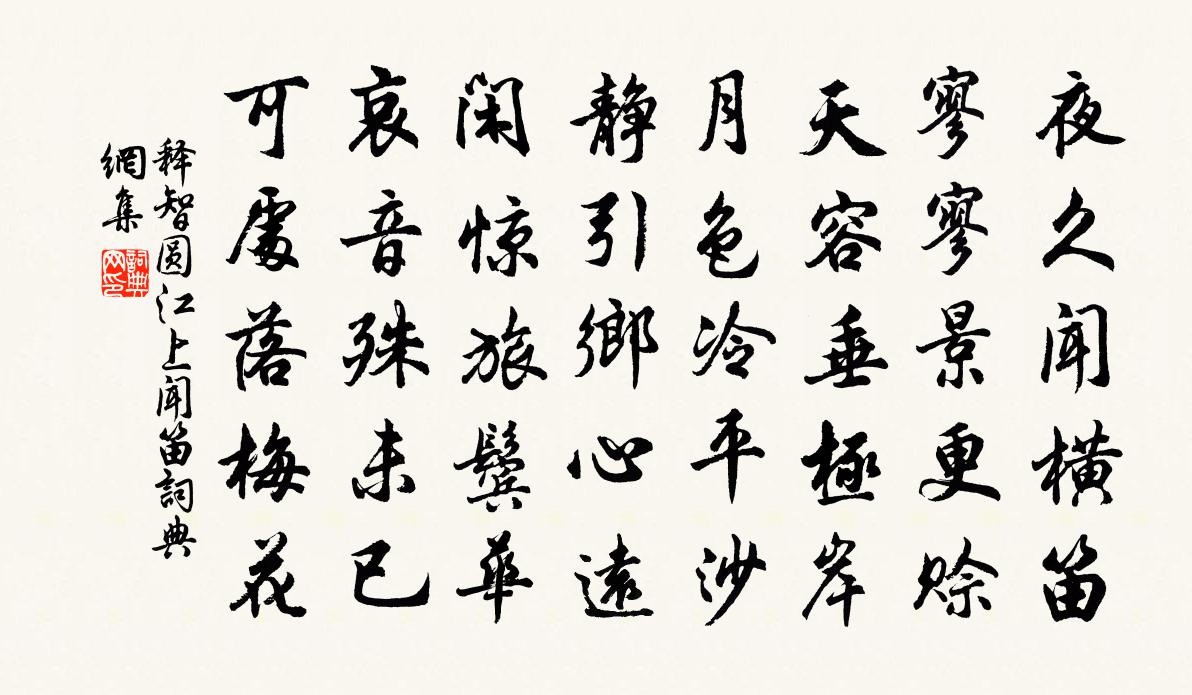 夜久闻横笛
寥寥景更赊
天容垂極岸
月色冷平沙
静引鄉心遠
闲惊旅鬓華
哀音殊未已
可處落梅花
释智圆江上闻笛詞典
網集
詞典
网印